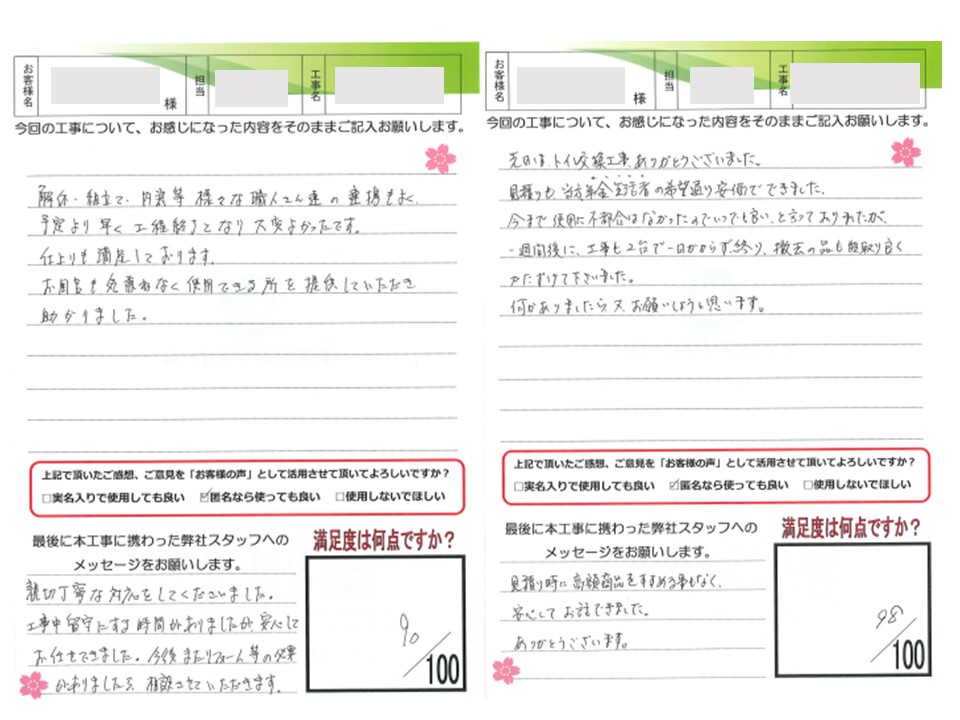 お客様名
様
担当
工事名
今回の工事について、お感じになった内容をそのままご記入お願いします。
解体・組立て・内装等 様々な職人さん達の連携もよく、
予定より早く工程終了となり大変よかったです。
仕上りも満足しております。
お風呂も気兼ねなく使用できる所を提供していただき
助かりました。
上記で頂いたご感想、ご意見を「お客様の声」として活用させて頂いてよろしいですか?
□実名入りで使用しても良い ☑匿名なら使っても良い □使用しないでほしい
最後に本工事に携わった弊社スタッフへの
メッセージをお願いします。
親切丁寧な対応をしてくださいました。
工事中留守にする時間がありましたが、安心して
お任せできました。今後またリフォーム等の必要
がありましたら、相談させていただきます。
満足度は何点ですか?
90
100
お客様名
様
担当
工事名
今回の工事について、お感じになった内容をそのままご記入お願いします。
先日は、トイレ交換工事ありがとうございました。
見積りも、当方年金生活者の希望通り安価でできました。
今まで使用に不都合はなかったのでいつでも良い、と言っておりましたが、
一週間後に、工事も2台で一日かからず終り、撤去の品も段取り良く
かたずけて下さいました。
何かありましたら、又、お願いしようと思います。
上記で頂いたご感想、ご意見を「お客様の声」として活用させて頂いてよろしいですか?
□実名入りで使用しても良い ☑匿名なら使っても良い □使用しないでほしい
最後に本工事に携わった弊社スタッフへの
メッセージをお願いします。
見積り時に高額商品をすすめる事もなく、
安心してお話できました。
ありがとうございます。
満足度は何点ですか?
98
100